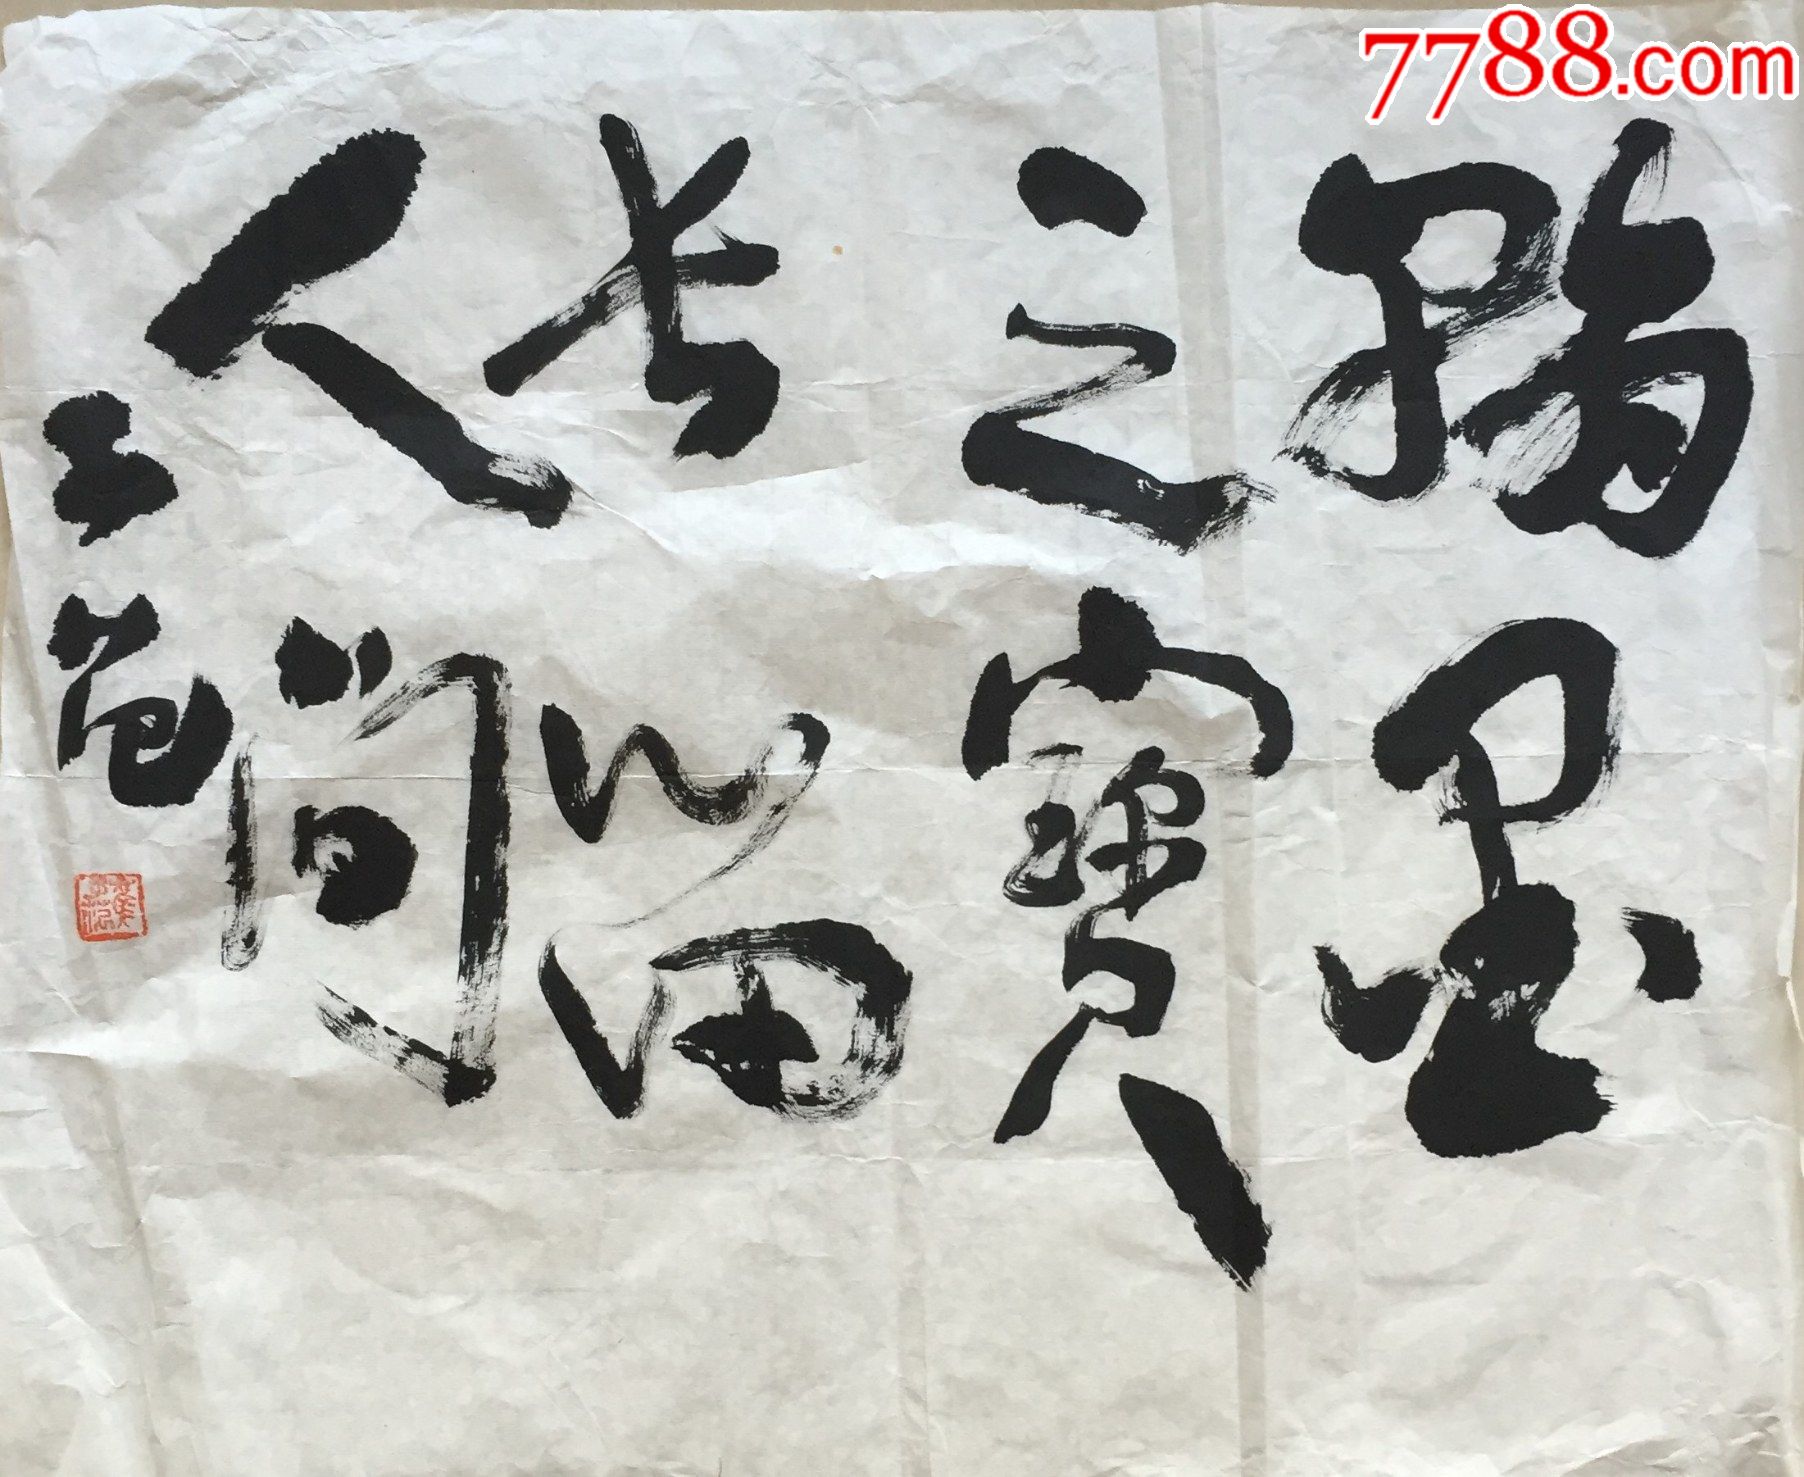 7788.com
翰墨
之寶
长留
人间